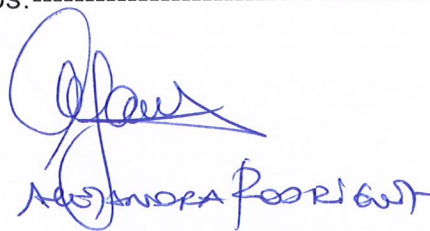 os.------------------------------
ALEJANDRA RODRIGUEZ